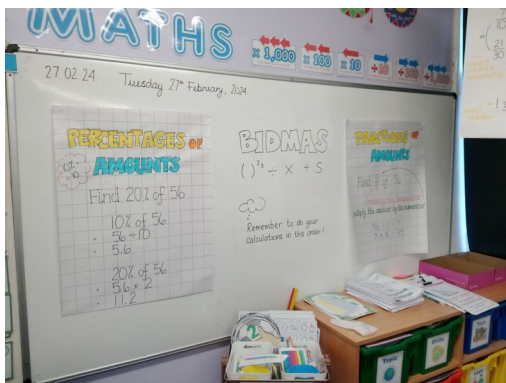 MATHS
x 1,000
x 100
x 10
÷10
÷100
÷1,000
27 02 24
Tuesday 27th February, 2024
PERCENTAGES OF
AMOUNTS
10%
÷10
Find 20% of 56
10% of 56
56 ÷ 10
5.6
20% of 56
5.6 x 2
11.2
BIDMAS
( ) ÷ x + S
Remember to do your
calculations in this order!
FRACTIONS OF
AMOUNTS
Find
multiply the answer by the numerator
21
30
Topic
DVDs